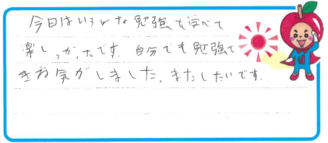 今日はいろんな勉強を学べて
楽しかったです。自分でも勉強で
きる気がしました。またしたいです。